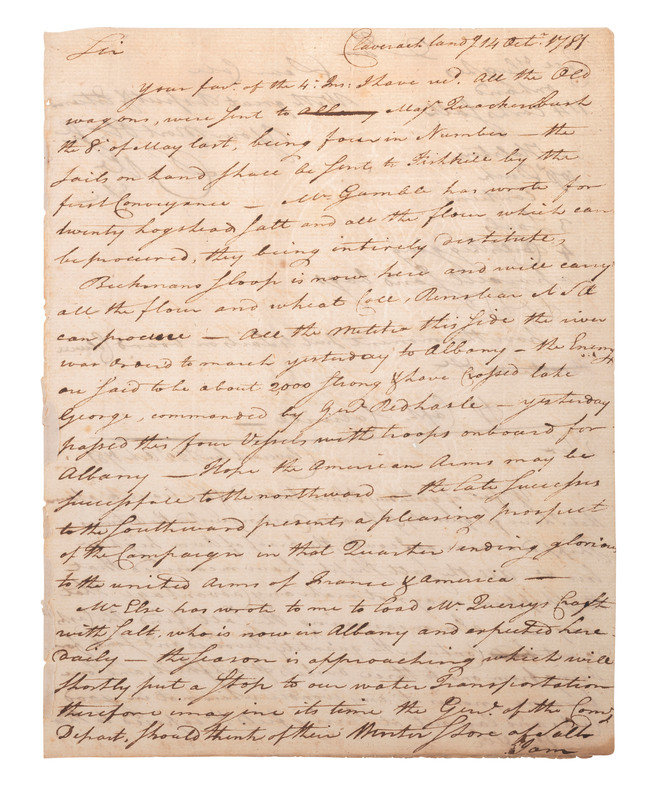 Sir Claverack land.g 14 Oct.r 1781
Your fav.r of the 4.th Ins.t I have rec.d All the Old
wagons, were sent to Albany Maj.r Quackenbush
the 8.th of May last, being four in Number — the
Sails on hand shall be sent to Fishkill by the
first Conveyance — M.r Gamble has wrote for
twenty hogshead Salt and all the flour which can
be procured, they being intirely distitute,
Beekmans Sloop is now here and will carry
all the flour and wheat Coll. Renslear
can procure — All the Militia this side the river
was Orderd to march yesterday to Albany — the Enemy
are said to be about 2,000 Strong & have Crossed lake
George, commanded by Gen.l Redhasle — yesterday
passed this four Vessels with troops onboard for
Albany — Hope the American Arms may be
Successfull to the northward — the late Successes
to the Southward presents a pleasing prospect
of the Campaign in that Quarter ending glorious
to the united Arms of France & America —
M.r Else has wrote to me to load M.r Quereys Craft
with Salt, who is now in Albany and expected here
daily — the Season is approaching which will
Shortly put a Stop to our water Transportation
therefore imagine its time the Gen.l of the Com.y
Depart. should think of their Winter Store of Salt
I am